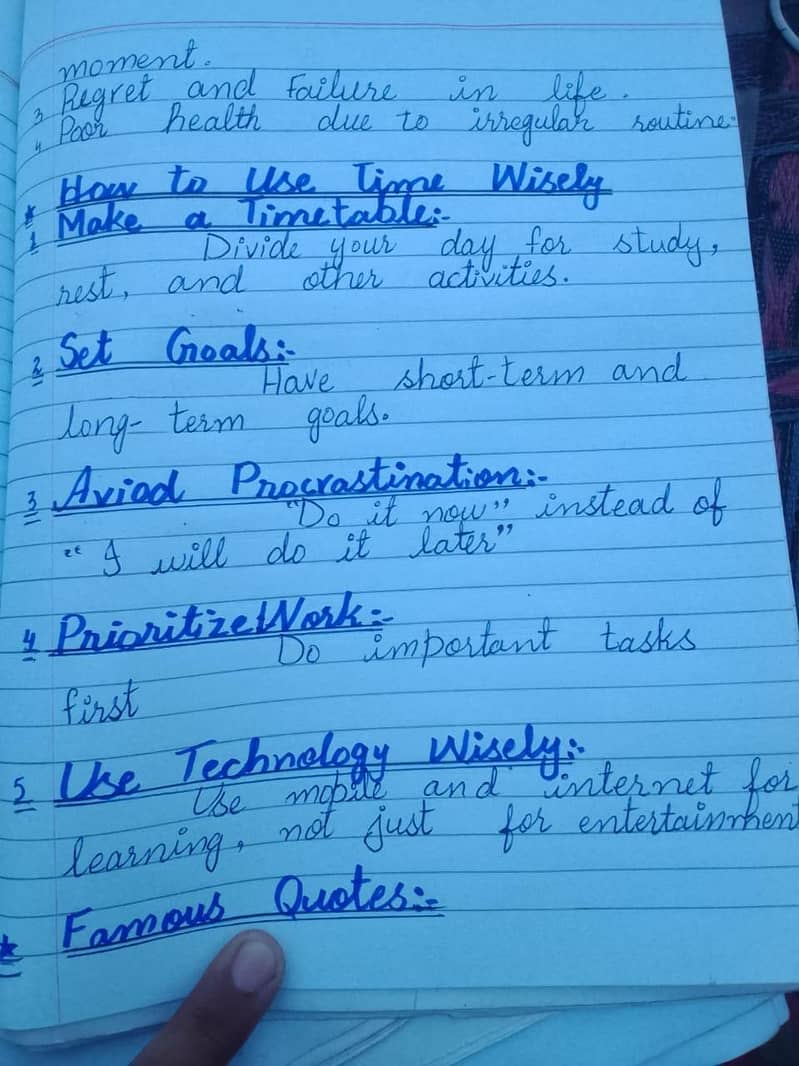 moment.
3 Regret and Failure in life.
4 Poor health due to irregular routine.
* How to Use Time Wisely
1 Make a Timetable:-
Divide your day for study,
rest, and other activities.
2 Set Goals:-
Have short-term and
long-term goals.
3 Aviod Procrastination:-
"Do it now" instead of
"I will do it later"
4 Prioritize Work:-
Do important tasks
first
5 Use Technology Wisely:-
Use mobile and internet for
learning, not just for entertainmhent
* Famous Quotes:-